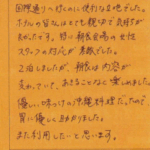 国際通りへ行くのに便利な立地でした。
ホテルの皆さんはとても親切で気持ちが
よかったです。特に朝食会場の女性
スタッフの対応が素敵でした。
2泊しましたが、朝食は内容が
変わっていて、あきることなく楽しめました。
優しい味つけの沖縄料理だったので
胃に優しく助かりました。
また利用したいと思います。